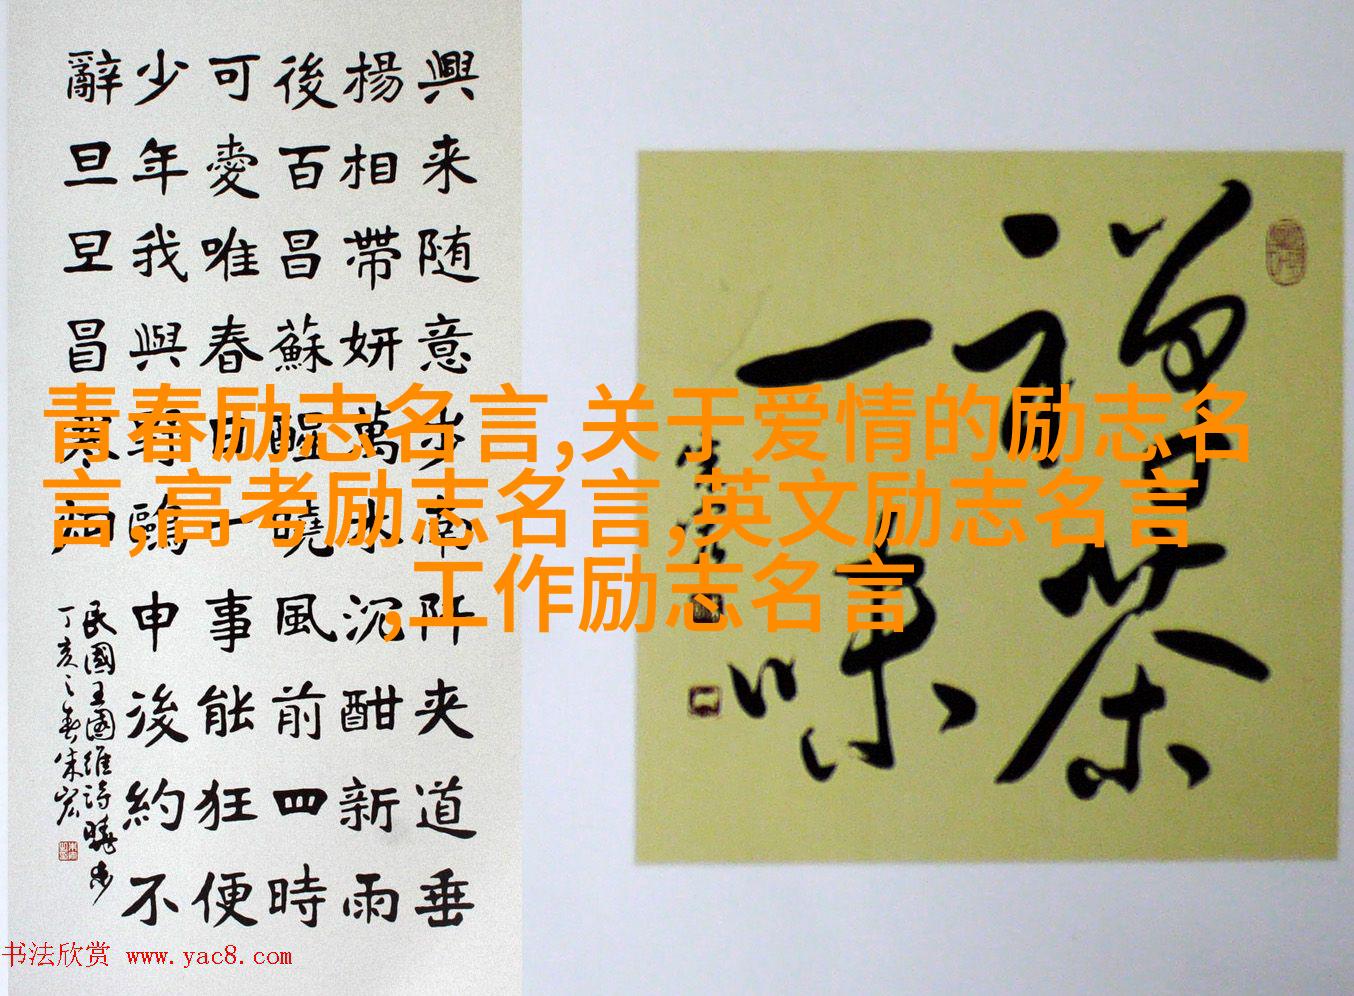 興来随意步南阡夹道垂
楊相帶妍萬木沉酣新雨
後百昌蘇醒曉風前四時
可愛唯春日一事能狂便
少年我與野鷗申後約不
辭旦旦冒寒烟
民國王國維詩曉步
丁亥之春朱宏
禅茶
一味
青春励志名言,关于爱情的励志名
言,高考励志名言,英文励志名言
,工作励志名言
书法欣赏 www.yac8.com